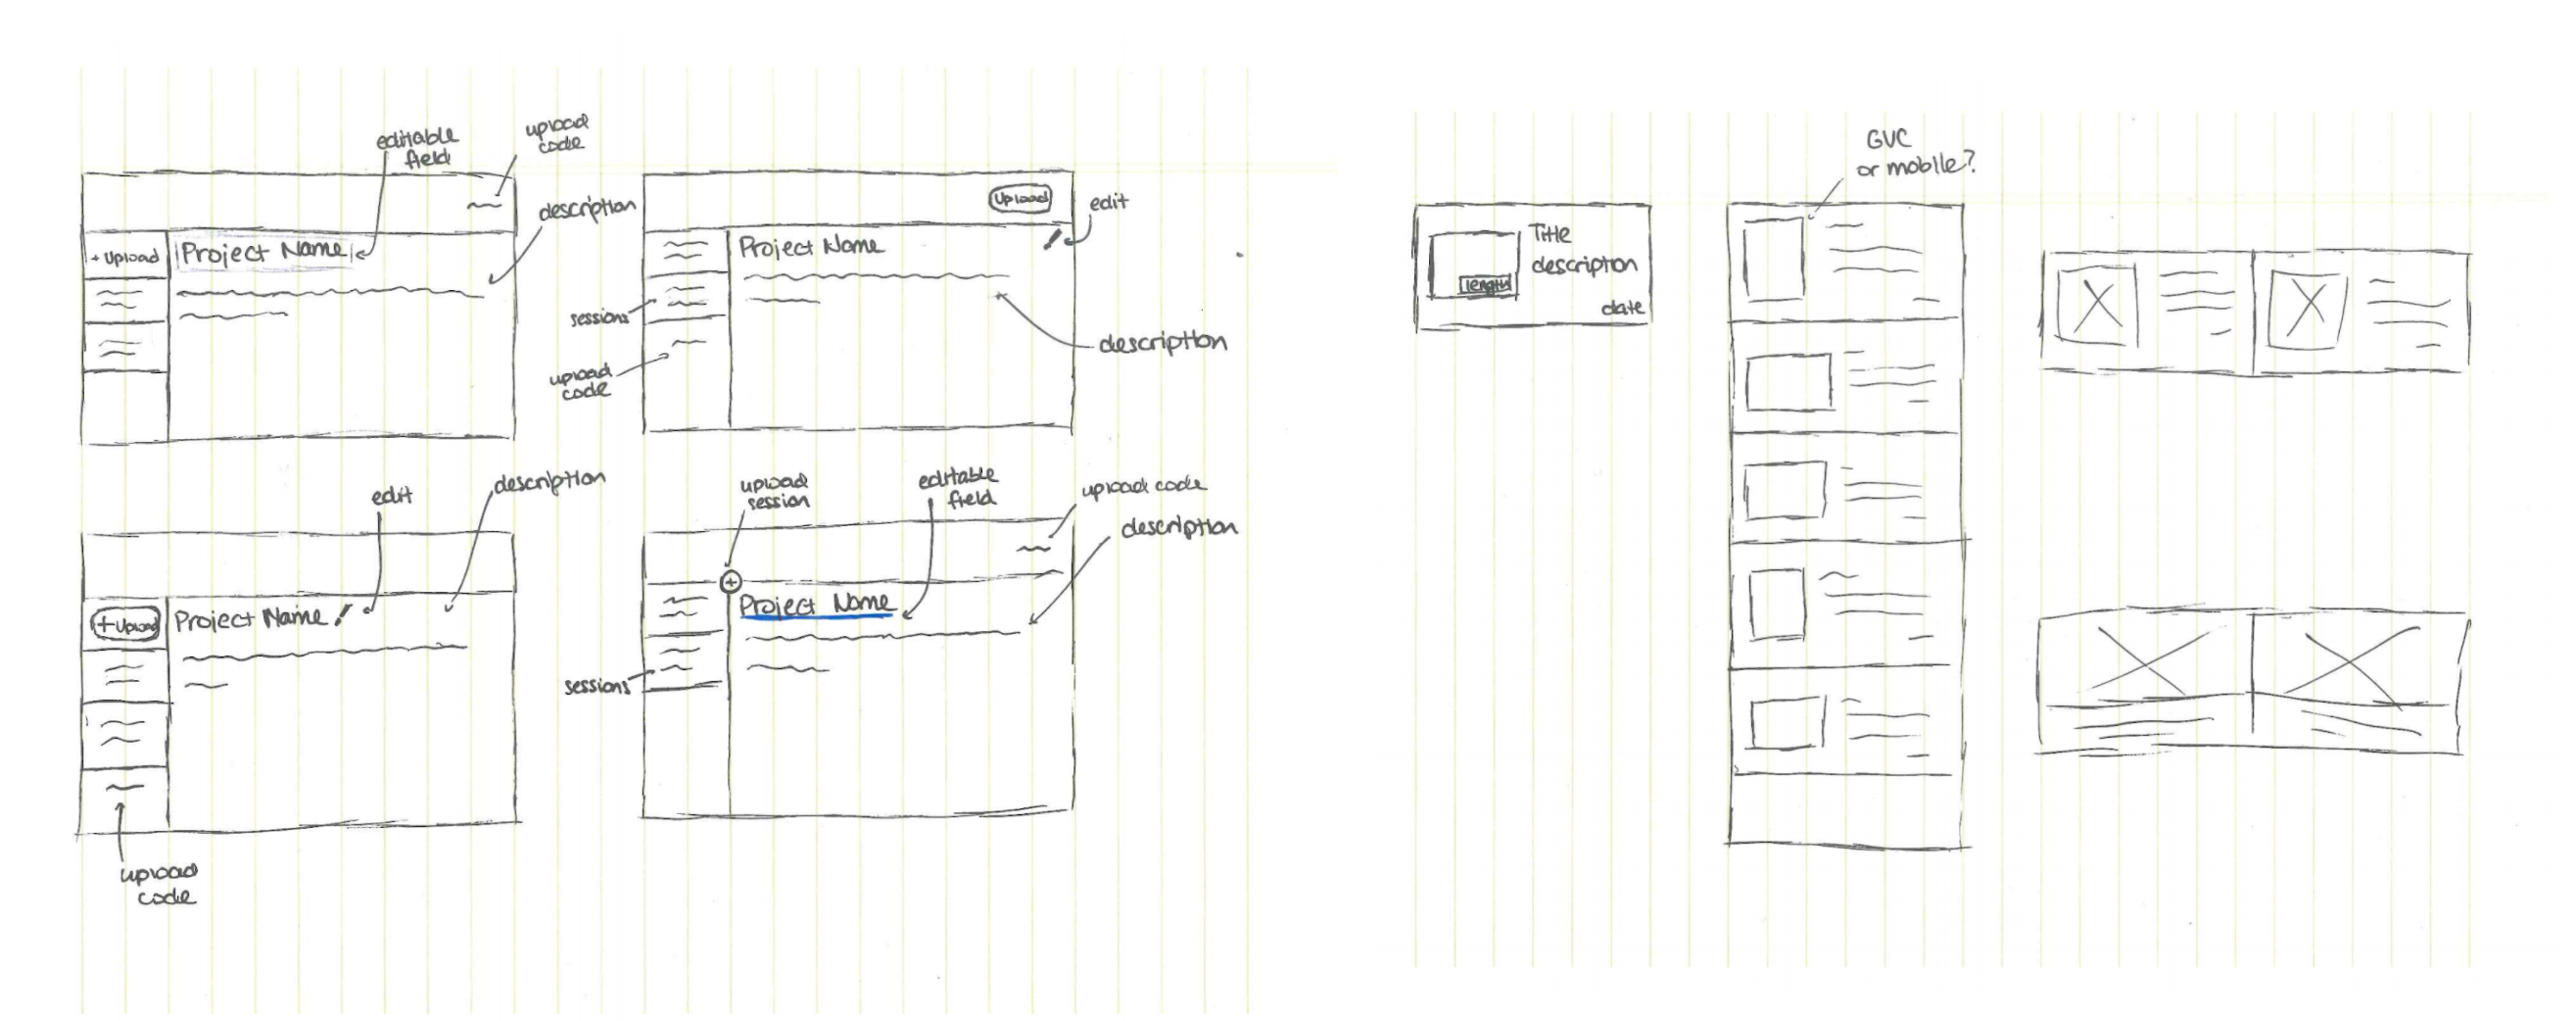 editable
field
upload
code
description
+ Upload
Project Name
Upload
edit
Project Name
sessions
upload
code
description
edit
description
+ Upload
Project Name
upload
code
upload
session
editable
field
upload code
description
+
Project Name
sessions
GVC
or mobile?
Title
description
length
date